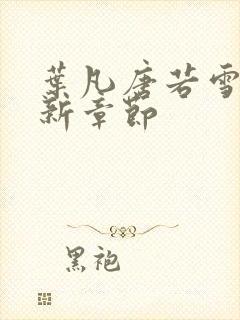 葉凡唐若雪
新章節
黑袍